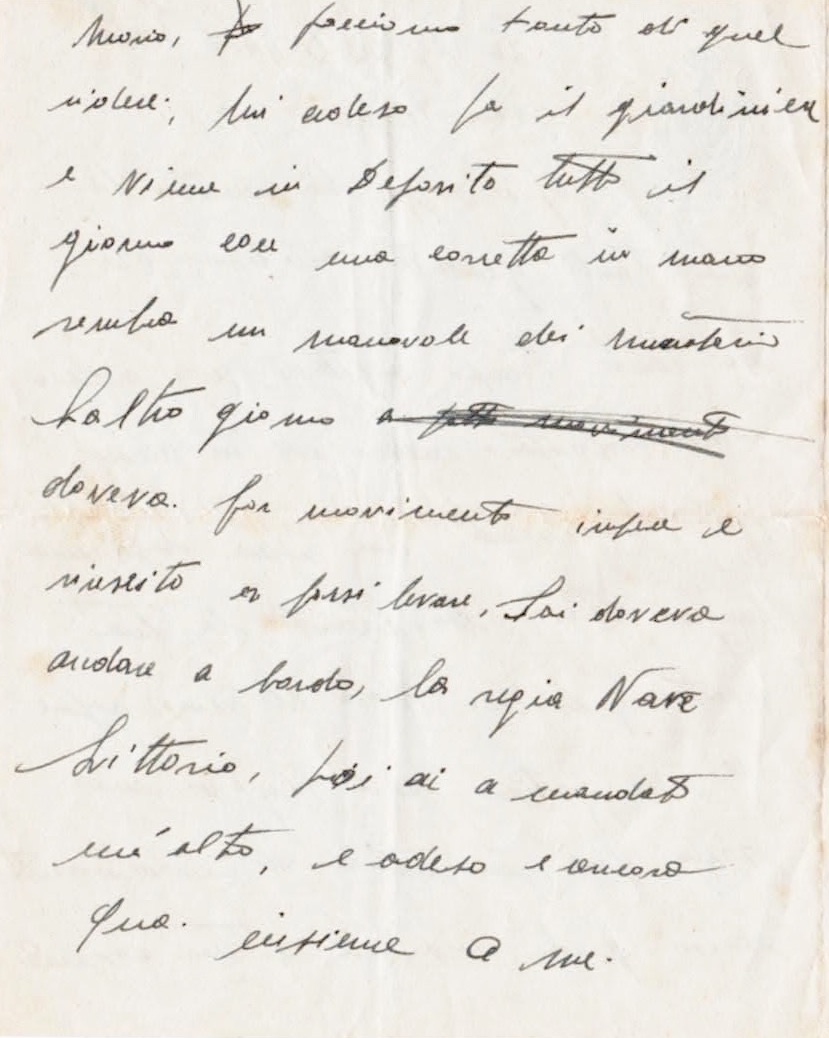 Mario, facciamo tanto di quel
ridere, lui adeso fa il giardinier
e Viene in Deposito tutto il
giorno con una carretta in mano
sembra un manovale dei
Laltro giorno a fatto moviment
doveva. far movimento e
riuscito a farsi levare, Lui doveva
andare a bordo, la regia Nave
Littorio, poi ai a mandat
un'altro, e adeso e ancora
qua. insieme a me.